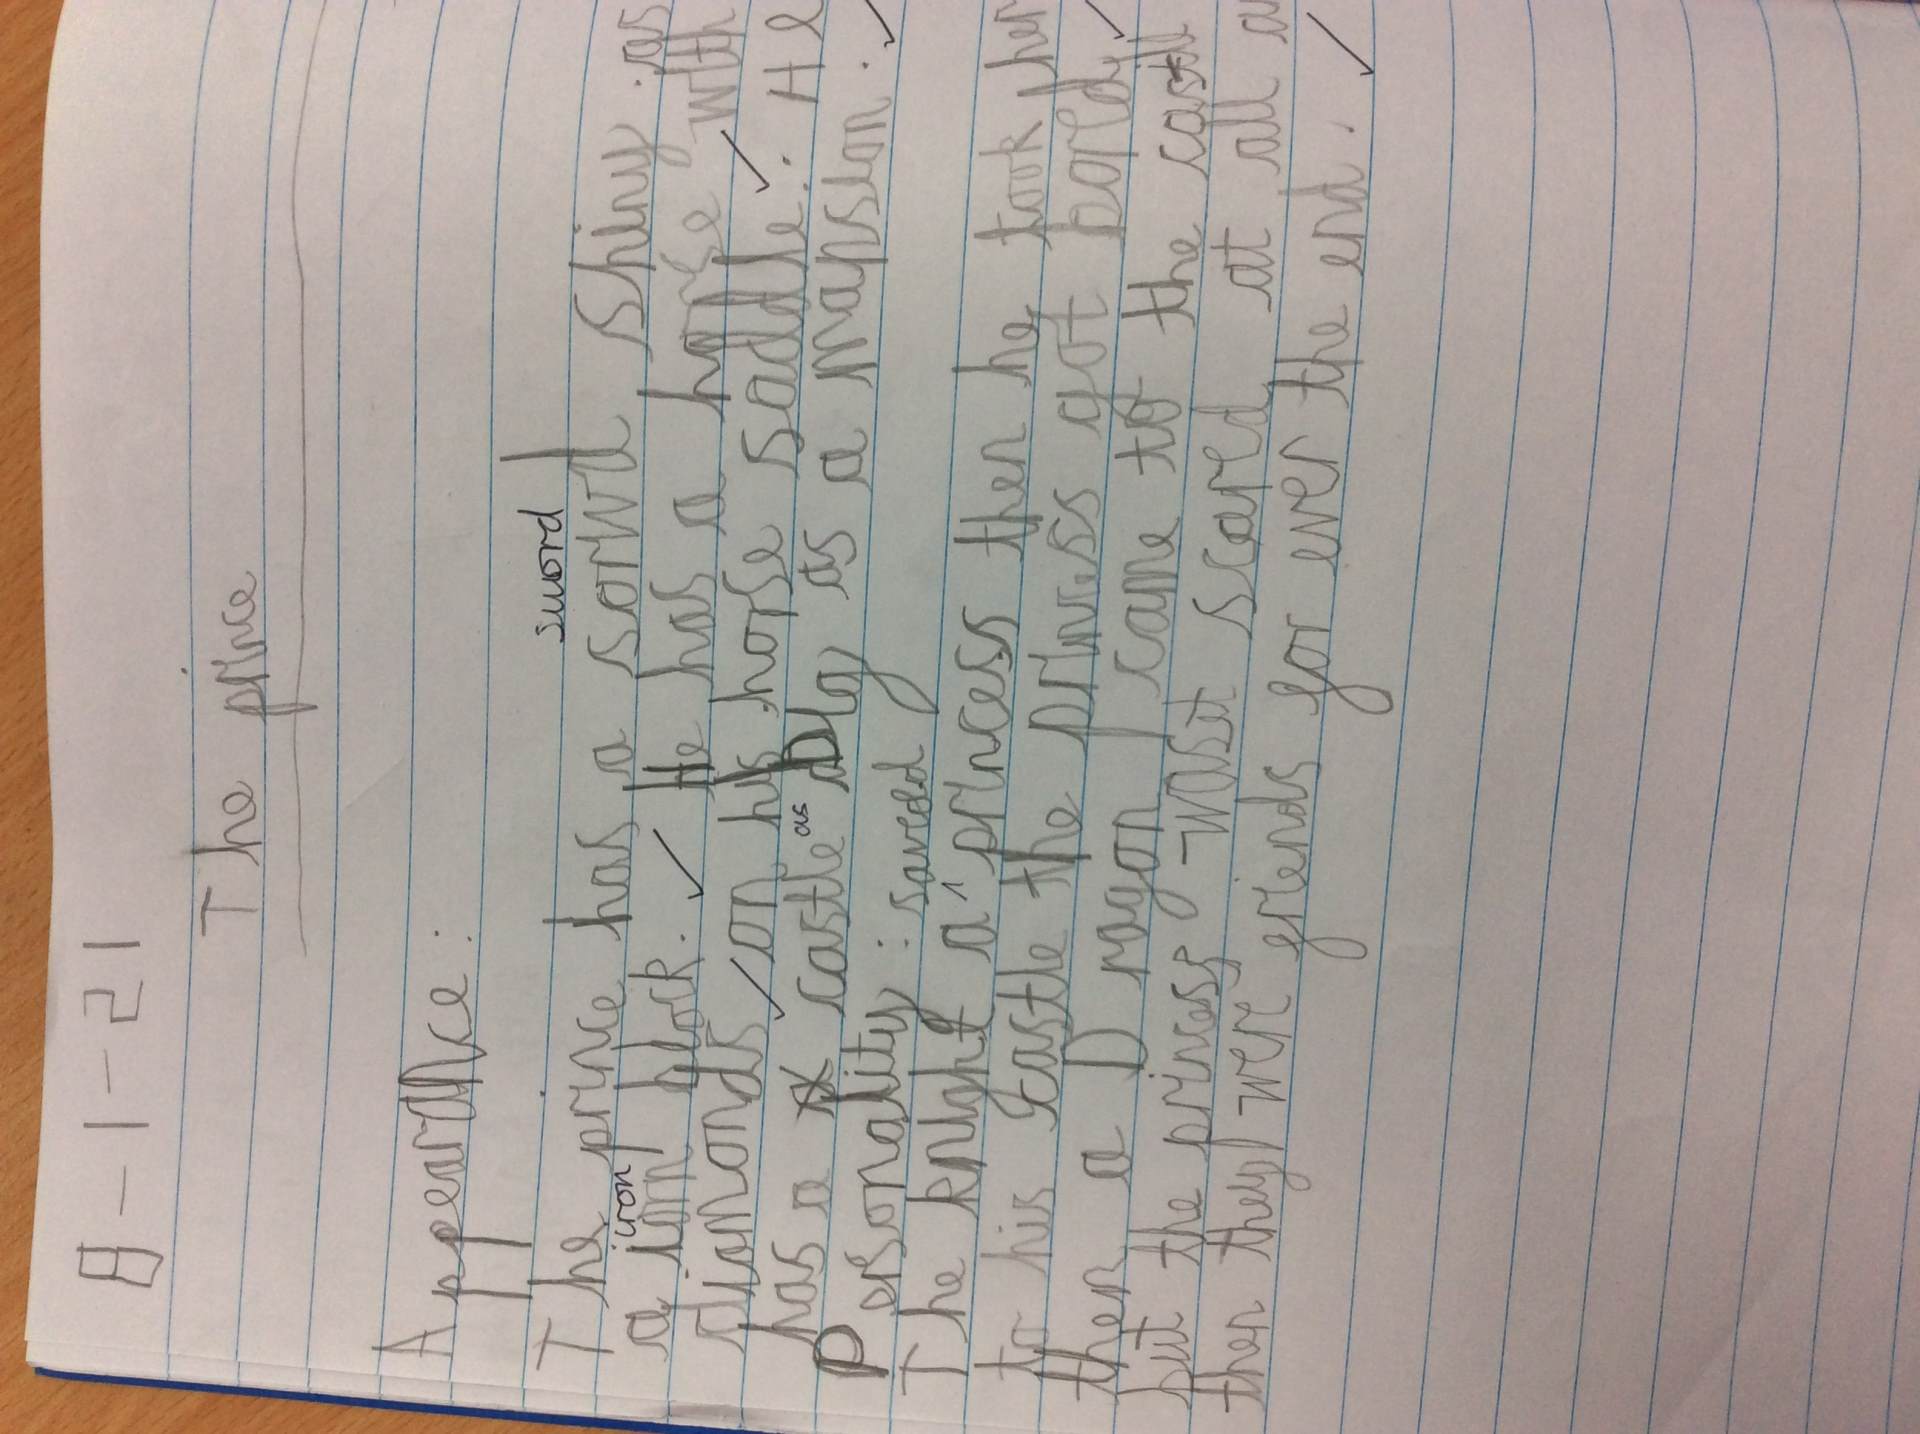 8-1-21
The prince
Appearance:
sword
The prince has a sorwd shiny as
iron
a iorn block. He has a horse with
diamonds on his horse saddle. H e
as
has a castle as big as a mapsion.
Personality: saved
The knight a ^ princess then he took her
to his castle the princess got bord
then a Dragon came to the castle
but the princess wasit scared at all a
then they wer friends for ever the end.